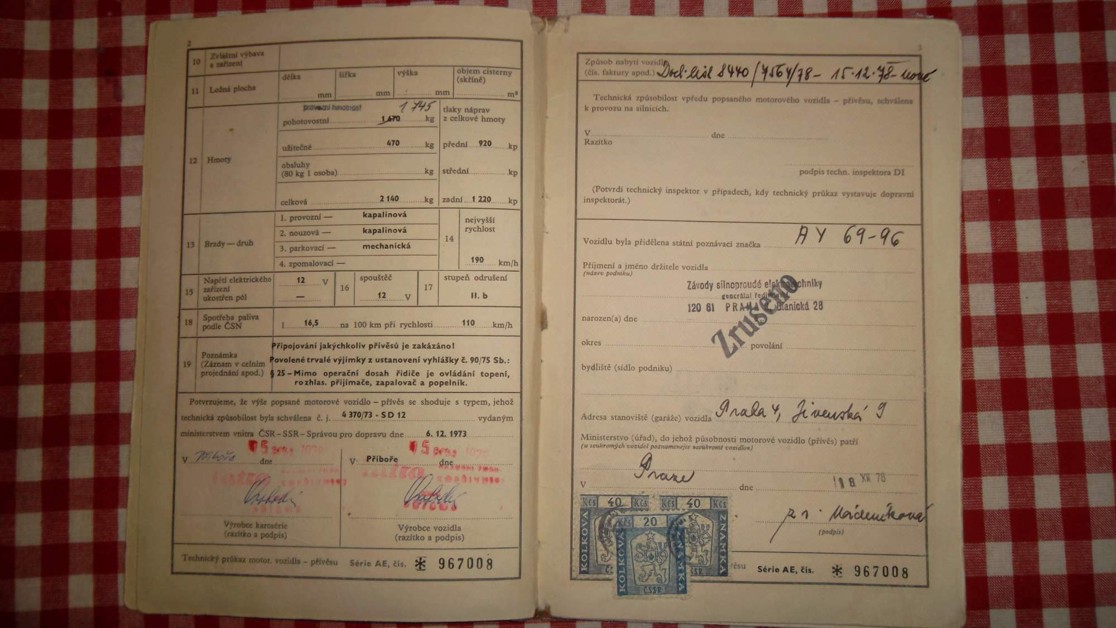 2
10 Zvláštní výbava a zařízení
11 Ložná plocha délka mm šířka mm výška mm objem cisterny (skříně) m³
12 Hmoty
pohotovostní 1 670 kg
1 745
užitečné 470 kg
obsluhy (80 kg 1 osoba) kg
celková 2 140 kg
tlaky náprav z celkové hmoty
přední 920 kp
střední kp
zadní 1 220 kp
13 Brzdy — druh
1. provozní — kapalinová
2. nouzová — kapalinová
3. parkovací — mechanická
4. zpomalovací —
14 nejvyšší rychlost
190 km/h
15 Napětí elektrického zařízení 12 V
ukostřen pól —
16 spouštěč
12 V
17 stupeň odrušení
II. b
18 Spotřeba paliva podle ČSN l 16,5 na 100 km při rychlosti 110 km/h
19 Poznámka (Záznam v celním projednání apod.)
Připojování jakýchkoliv přívěsů je zakázáno!
Povolené trvalé výjimky z ustanovení vyhlášky č. 90/75 Sb.:
§ 25 – Mimo operační dosah řidiče je ovládání topení,
rozhlas. přijímače, zapalovač a popelník.
Potvrzujeme, že výše popsané motorové vozidlo – přívěs se shoduje s typem, jehož
technická způsobilost byla schválena č. j. 4 370/73 - SD 12 vydaným
ministerstvem vnitra ČSR – SSR – Správou pro dopravu dne 6. 12. 1973
V dne
V Příboře dne
Výrobce karosérie
(razítko a podpis)
Výrobce vozidla
(razítko a podpis)
Technický průkaz motor. vozidla – přívěsu Série AE, čís. ✻ 967008
3
Způsob nabytí vozidla
(čís. faktury apod.) 8440/4564/78 – 15.12.78
Technická způsobilost vpředu popsaného motorového vozidla – přívěsu, schválena
k provozu na silnicích.
V dne
Razítko
podpis techn. inspektora DI
(Potvrdí technický inspektor v případech, kdy technický průkaz vystavuje dopravní
inspektorát.)
Vozidlu byla přidělena státní poznávací značka AY 69-96
Příjmení a jméno držitele vozidla
(název podniku)
Závody silnoproudé elektrotechniky
generální
narozen(a) dne 120 61 28
Zrušeno
okres povolání
bydliště (sídlo podniku)
Adresa stanoviště (garáže) vozidla Praha 4,
Ministerstvo (úřad), do jehož působnosti motorové vozidlo (přívěs) patří
(u soukromých vozidel poznamenejte soukromé vozidlo)
V Praze dne 18 XII 78
(podpis)
Kčs 40 Kčs
Kčs 20
40 Kčs
KOLKOVÁ ZNÁMKA
KOLKOVÁ
ČSSR
ZNÁMKA
ěsu Série AE, čís. ✻ 967008